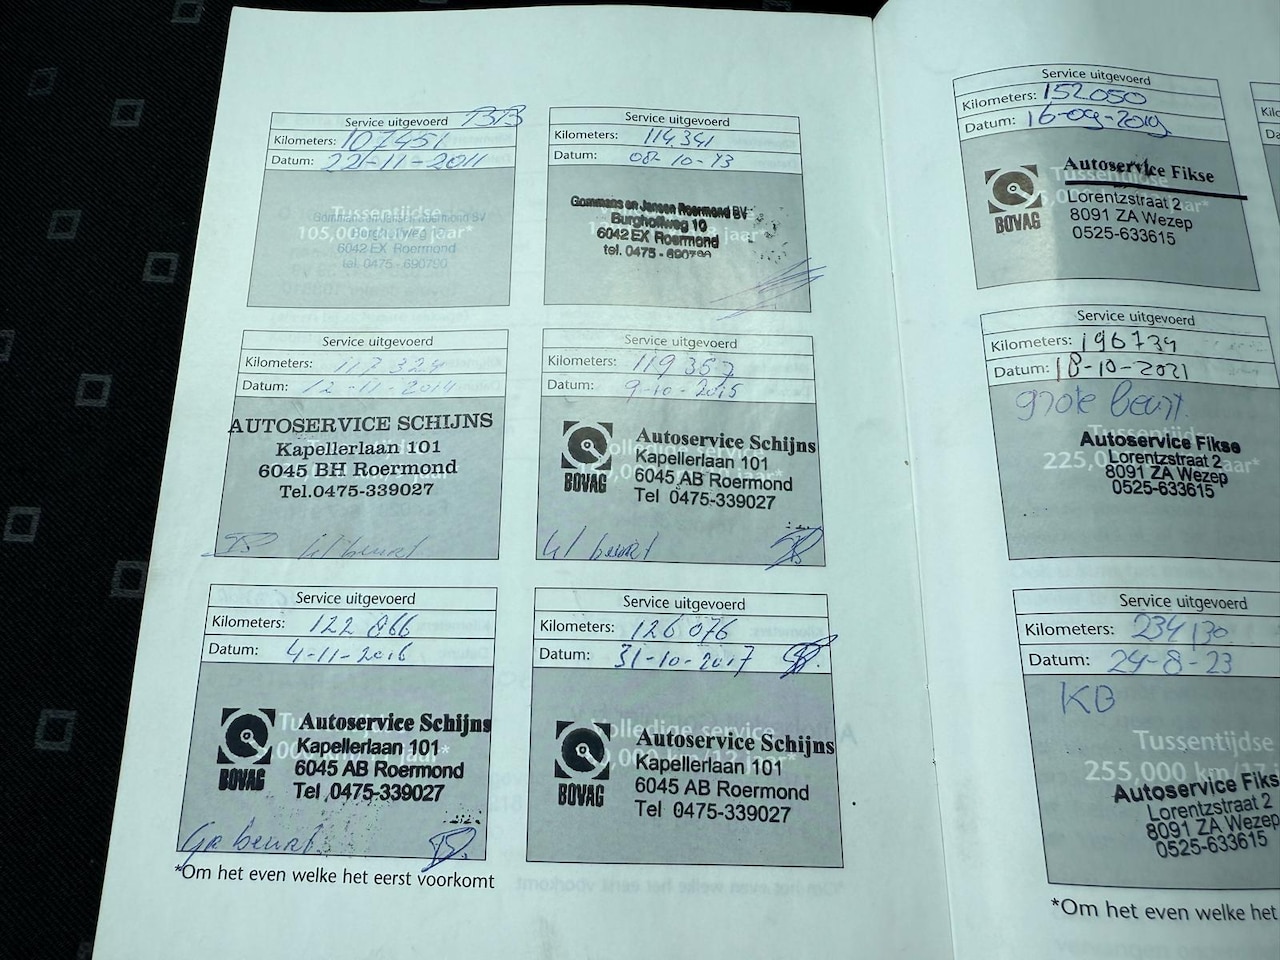 Service uitgevoerd
Kilometers: 107451
Datum: 22-11-2011
Tussentijdse
Gommans en Jansen Roermond BV
105,000
Burghoffweg 10
6042 EX Roermond
tel. 0475 - 690790
Service uitgevoerd
Kilometers: 114,341
Datum: 08-10-13
Gommans en Jansen Roermond BV
Burghoffweg 10
6042 EX Roermond
jaar*
tel. 0475 - 690790
Service uitgevoerd
Kilometers: 117 324
Datum: 12-11-2014
AUTOSERVICE SCHIJNS
Kapellerlaan 101
6045 BH Roermond
Tel.0475-339027
kl beurt
Service uitgevoerd
Kilometers: 119 357
Datum: 9-10-2015
Autoservice Schijns
Kapellerlaan 101
6045 AB Roermond
Tel 0475-339027
BOVAG
kl beurt
Service uitgevoerd
Kilometers: 122 866
Datum: 4-11-2016
Autoservice Schijns
Kapellerlaan 101
6045 AB Roermond
Tel 0475-339027
BOVAG
Gr beurt
Service uitgevoerd
Kilometers: 126 076
Datum: 31-10-2017
Volledige service
Autoservice Schijns
Kapellerlaan 101
6045 AB Roermond
Tel 0475-339027
BOVAG
*Om het even welke het eerst voorkomt
Service uitgevoerd
Kilometers: 152050
Datum: 16-09-2019
Tussentijdse
Autoservice Fikse
Lorentzstraat 2
8091 ZA Wezep
0525-633615
BOVAG
Service uitgevoerd
Kilometers: 196734
Datum: 18-10-2021
grote beurt.
Tussentijdse
225,000
jaar*
Autoservice Fikse
Lorentzstraat 2
8091 ZA Wezep
0525-633615
Service uitgevoerd
Kilometers: 234130
Datum: 24-8-23
KB
Tussentijdse
255,000 km/17
Autoservice Fiks
Lorentzstraat 2
8091 ZA Wezep
0525-633615
*Om het even welke het